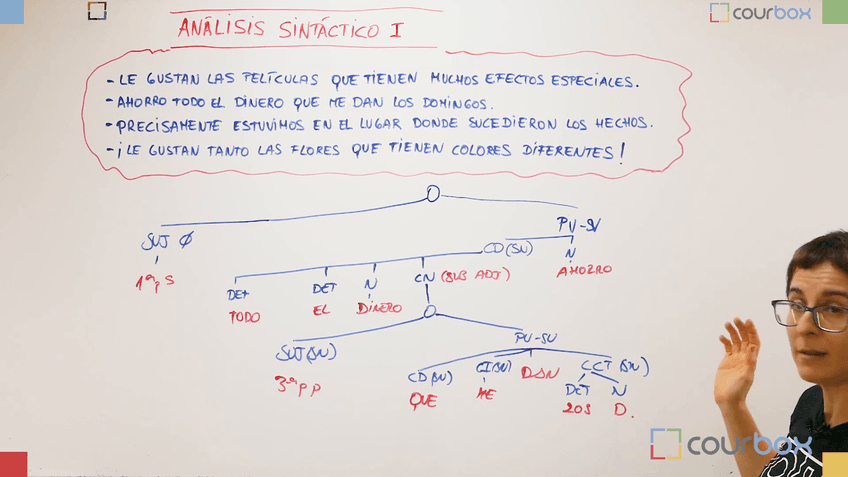 courbox
ANÁLISIS SINTÁCTICO I
- LE GUSTAN LAS PELÍCULAS QUE TIENEN MUCHOS EFECTOS ESPECIALES.
- AHORRO TODO EL DINERO QUE ME DAN LOS DOMINGOS.
- PRECISAMENTE ESTUVIMOS EN EL LUGAR DONDE SUCEDIERON LOS HECHOS.
- ¡LE GUSTAN TANTO LAS FLORES QUE TIENEN COLORES DIFERENTES!
O
SUJ Ø PV-SV
1ª p S CD (SN) N
AHORRO
DET DET N CN (SUB ADJ)
TODO EL DINERO
O
SUJ (SN) PV-SV
3ª p p CD (SN) CI (SN) DAN CCT (SN)
QUE ME DET N
LOS D.
courbox